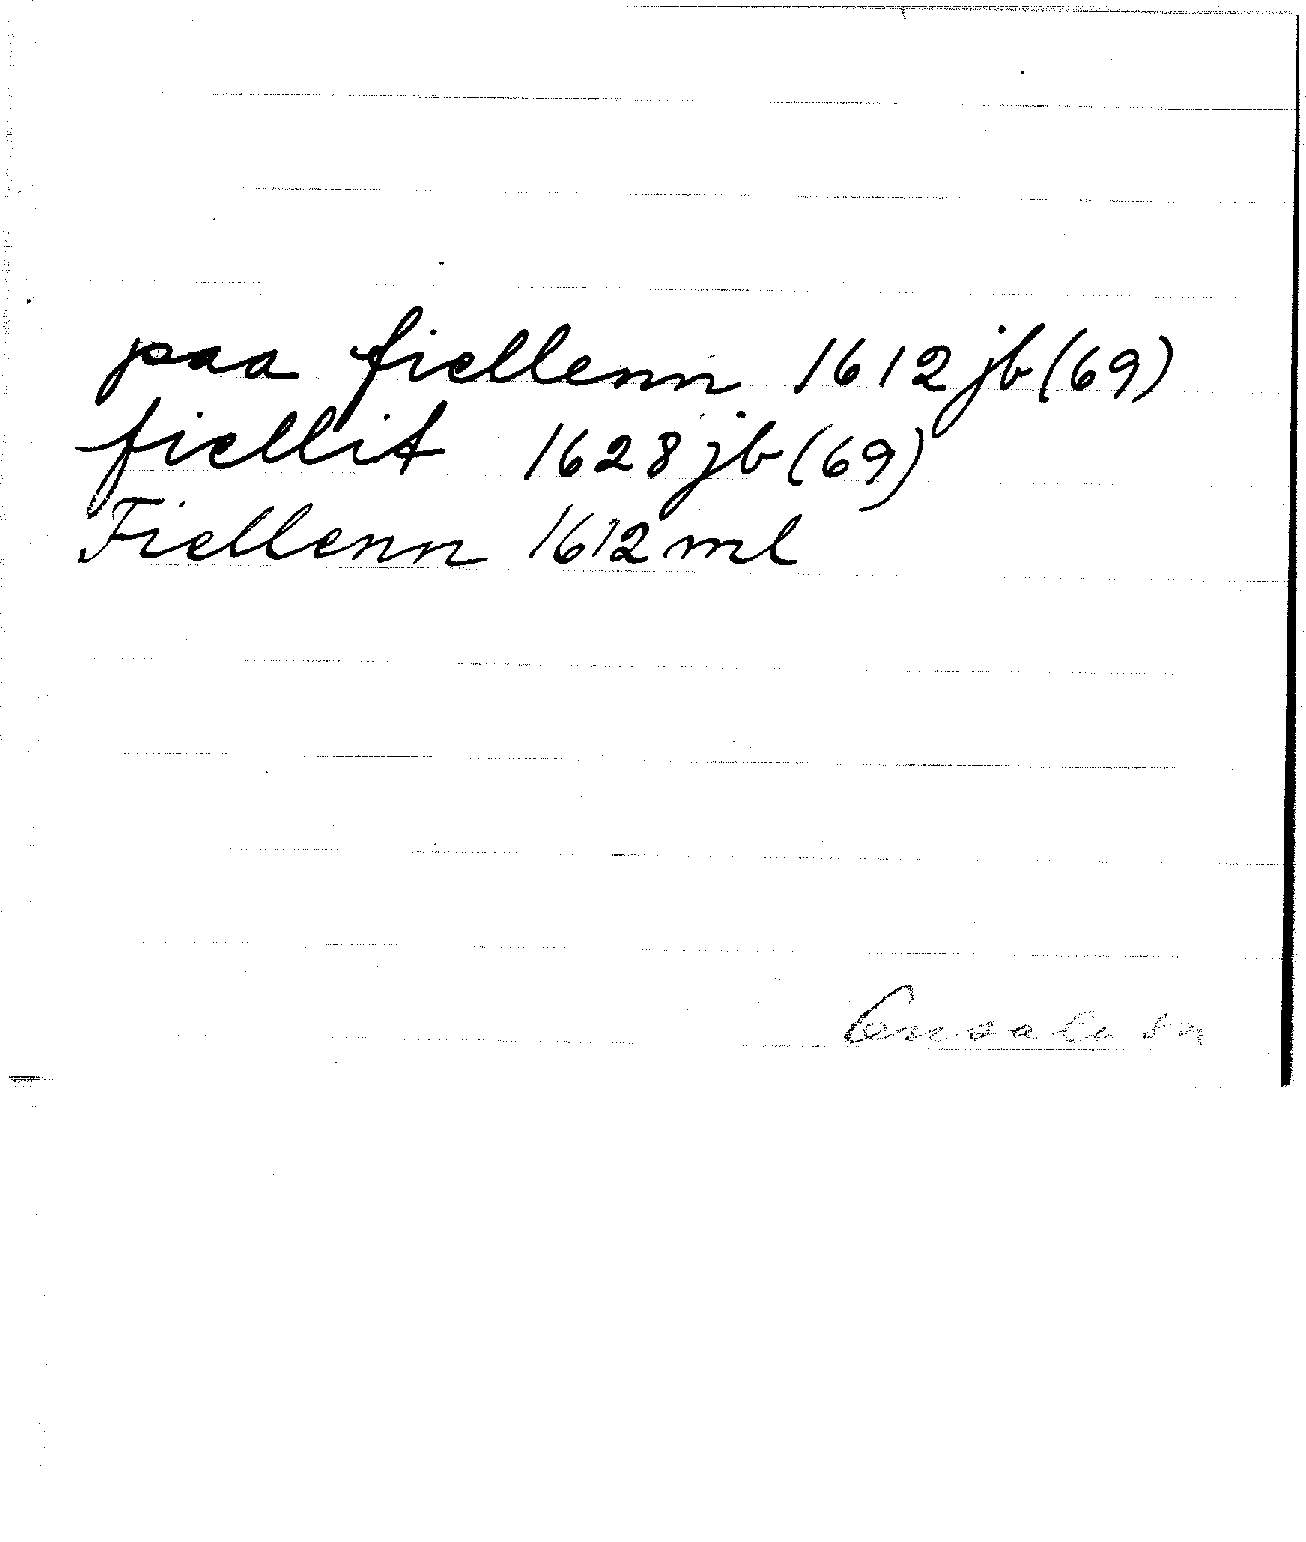 paa fiellenn 1612 jb (69)
fiellit 1628 jb (69)
Fiellenn 1612 ml